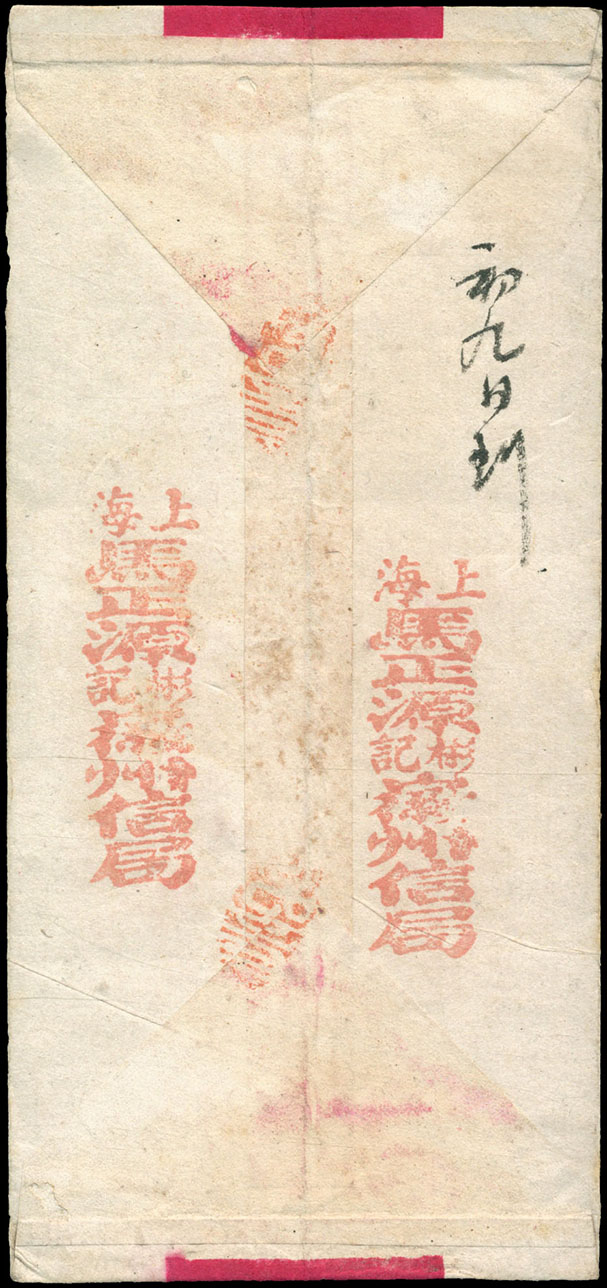 初九日到
上海
馬正源彬記州信局
上海
馬正源彬記州信局